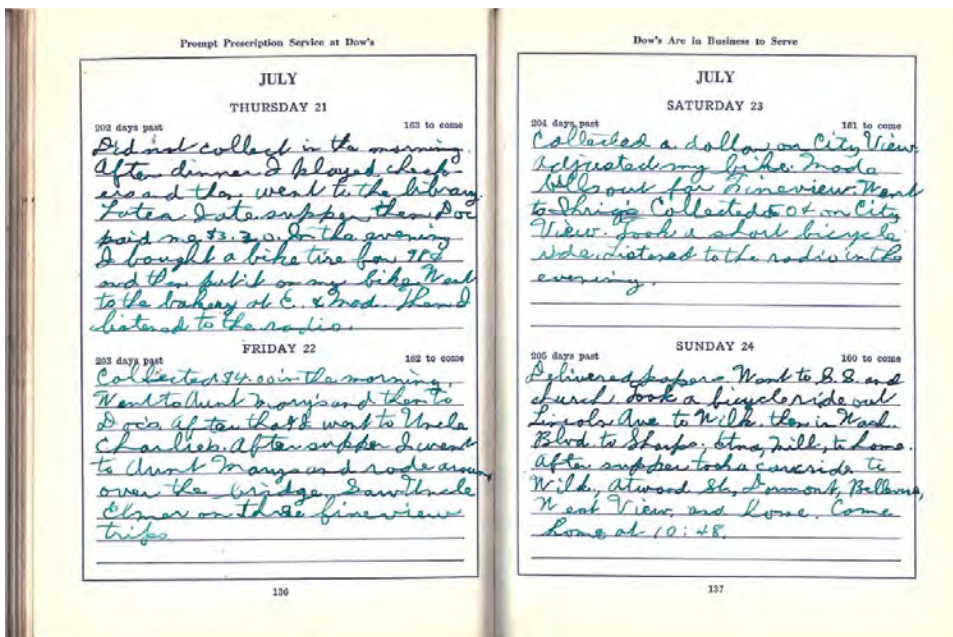 Prompt Prescription Service at Dow's
JULY
THURSDAY 21
202 days past 163 to come
Did not collect in the morning.
After dinner I played check-
ers and then went to the library.
Later I ate supper then Doc
paid me $3.20. In the evening
I bought a bike tire for 98¢
and then put it on my bike. Went
to the bakery at E. & Mad. Then I
listened to the radio.
FRIDAY 22
203 days past 162 to come
Collected $4.00 in the morning.
Went to Aunt Mary's and then to
Doc's. After that I went to Uncle
Charlies. After supper I went
to Aunt Marys and rode around
over the bridge. Saw Uncle
Elmer on three fineview
trips
136
Dow's Are in Business to Serve
JULY
SATURDAY 23
204 days past 161 to come
Collected a dollar on City View.
Adjusted my bike. Made
bills out for Fineview. Went
to Collected 50¢ on City
View. Took a short bicycle
ride. Listened to the radio in the
evening.
SUNDAY 24
205 days past 160 to come
Delivered papers. Went to S.S. and
church. Took a bicycle ride out
Lincoln Ave. to Wilk. then in Wash.
Blvd to Sharps. Etna, Mill., to home.
After supper took a car ride to
Wilk., Atwood St., Dormont, Bellevue,
West View, and home. Came
home at 10:48.
137